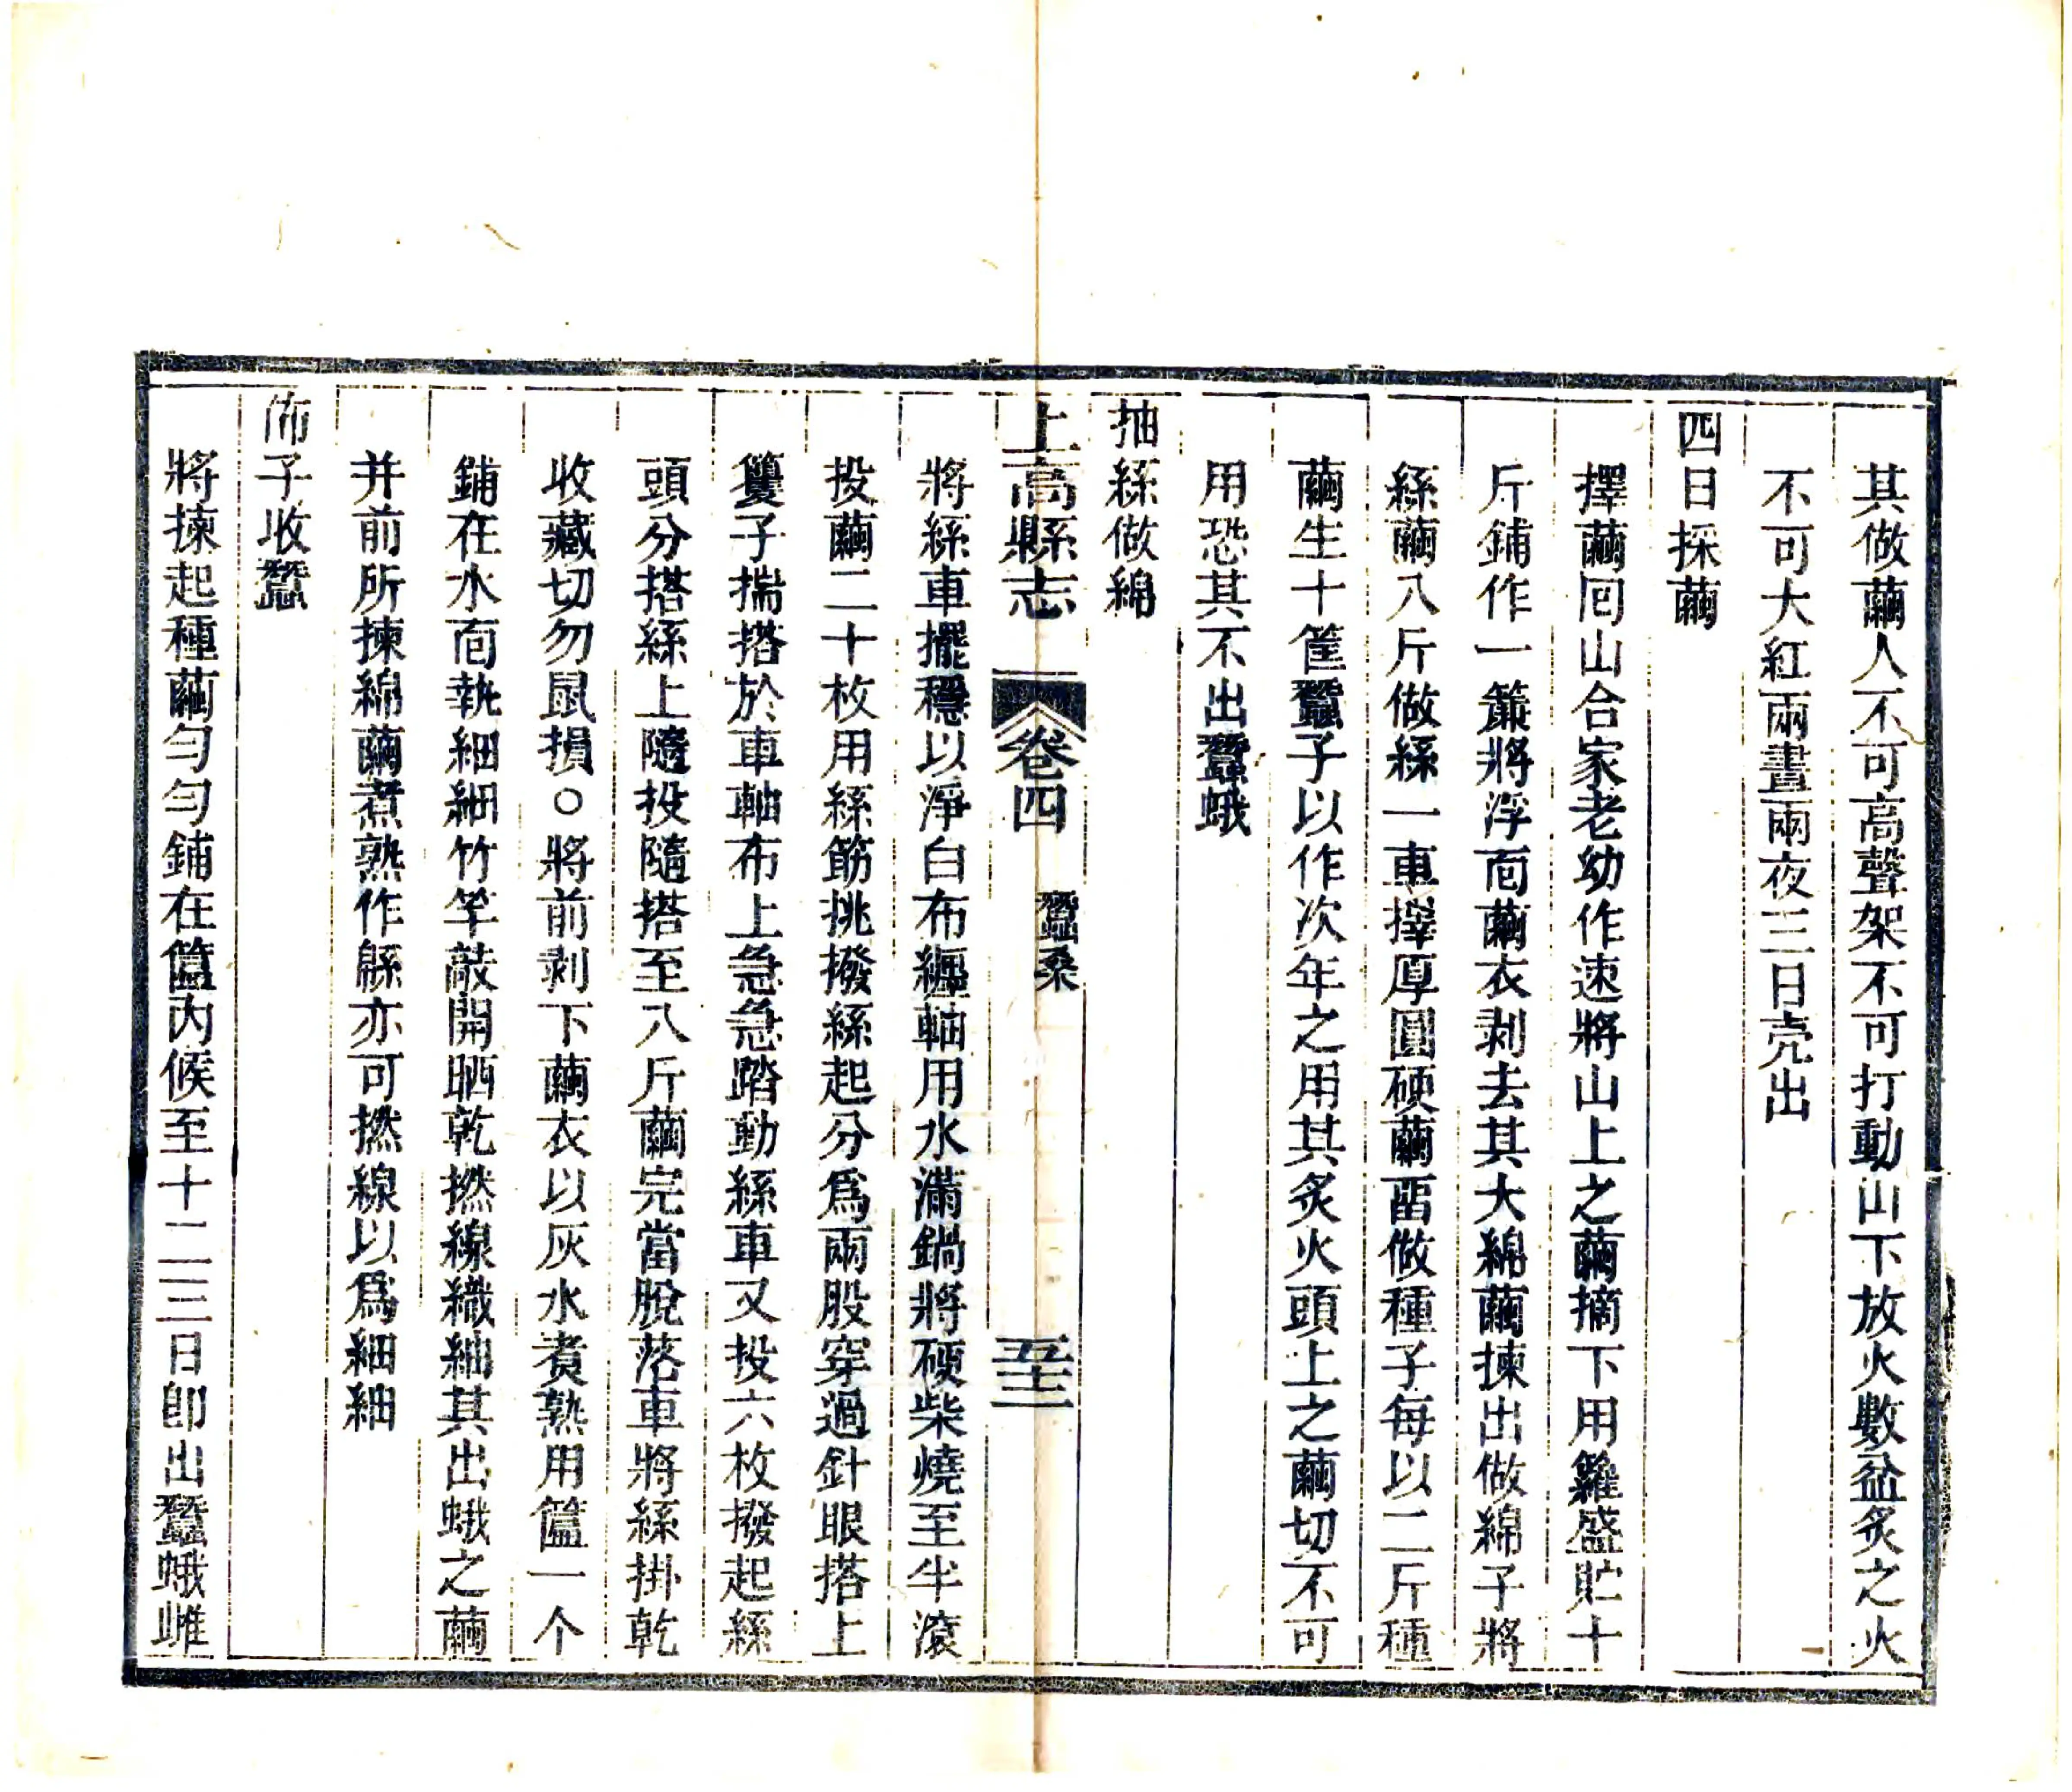 其做繭人不可高聲架不可打動山下放火數盆炙之火
不可大紅兩晝兩夜三日壳出
四日採繭
擇繭囘山合家老幼作速將山上之繭摘下用籮盛貯十
斤鋪作一簾將浮靣繭衣剥去其大綿繭揀出做綿子將
絲繭八斤做絲一車擇厚圓硬繭畱做種子每以二斤種
繭生十筐蠶子以作次年之用其炙火頭上之繭切不可
用恐其不出蠶蛾
抽絲做綿
上高縣志 卷四 蠶桑 五十三
將絲車擺穩以淨白布纏軸用水滿鍋將硬柴燒至半滾
投繭二十枚用絲筯挑撥絲起分爲兩股穿過針眼搭上
籰子揣搭於車軸布上急急踏動絲車又投六枚撥起絲
頭分搭絲上隨投隨搭至八斤繭完當脫落車將絲掛乾
收藏切勿鼠損○將前剥下繭衣以灰水煮熟用簠一个
鋪在水靣執細細竹竿敲開晒乾撚線織紬其出蛾之繭
并前所揀綿繭煮熟作緜亦可撚線以爲細紬
佈子收蠶
將揀起種繭勻勻鋪在簠內候至十二三日卽出蠶蛾雌